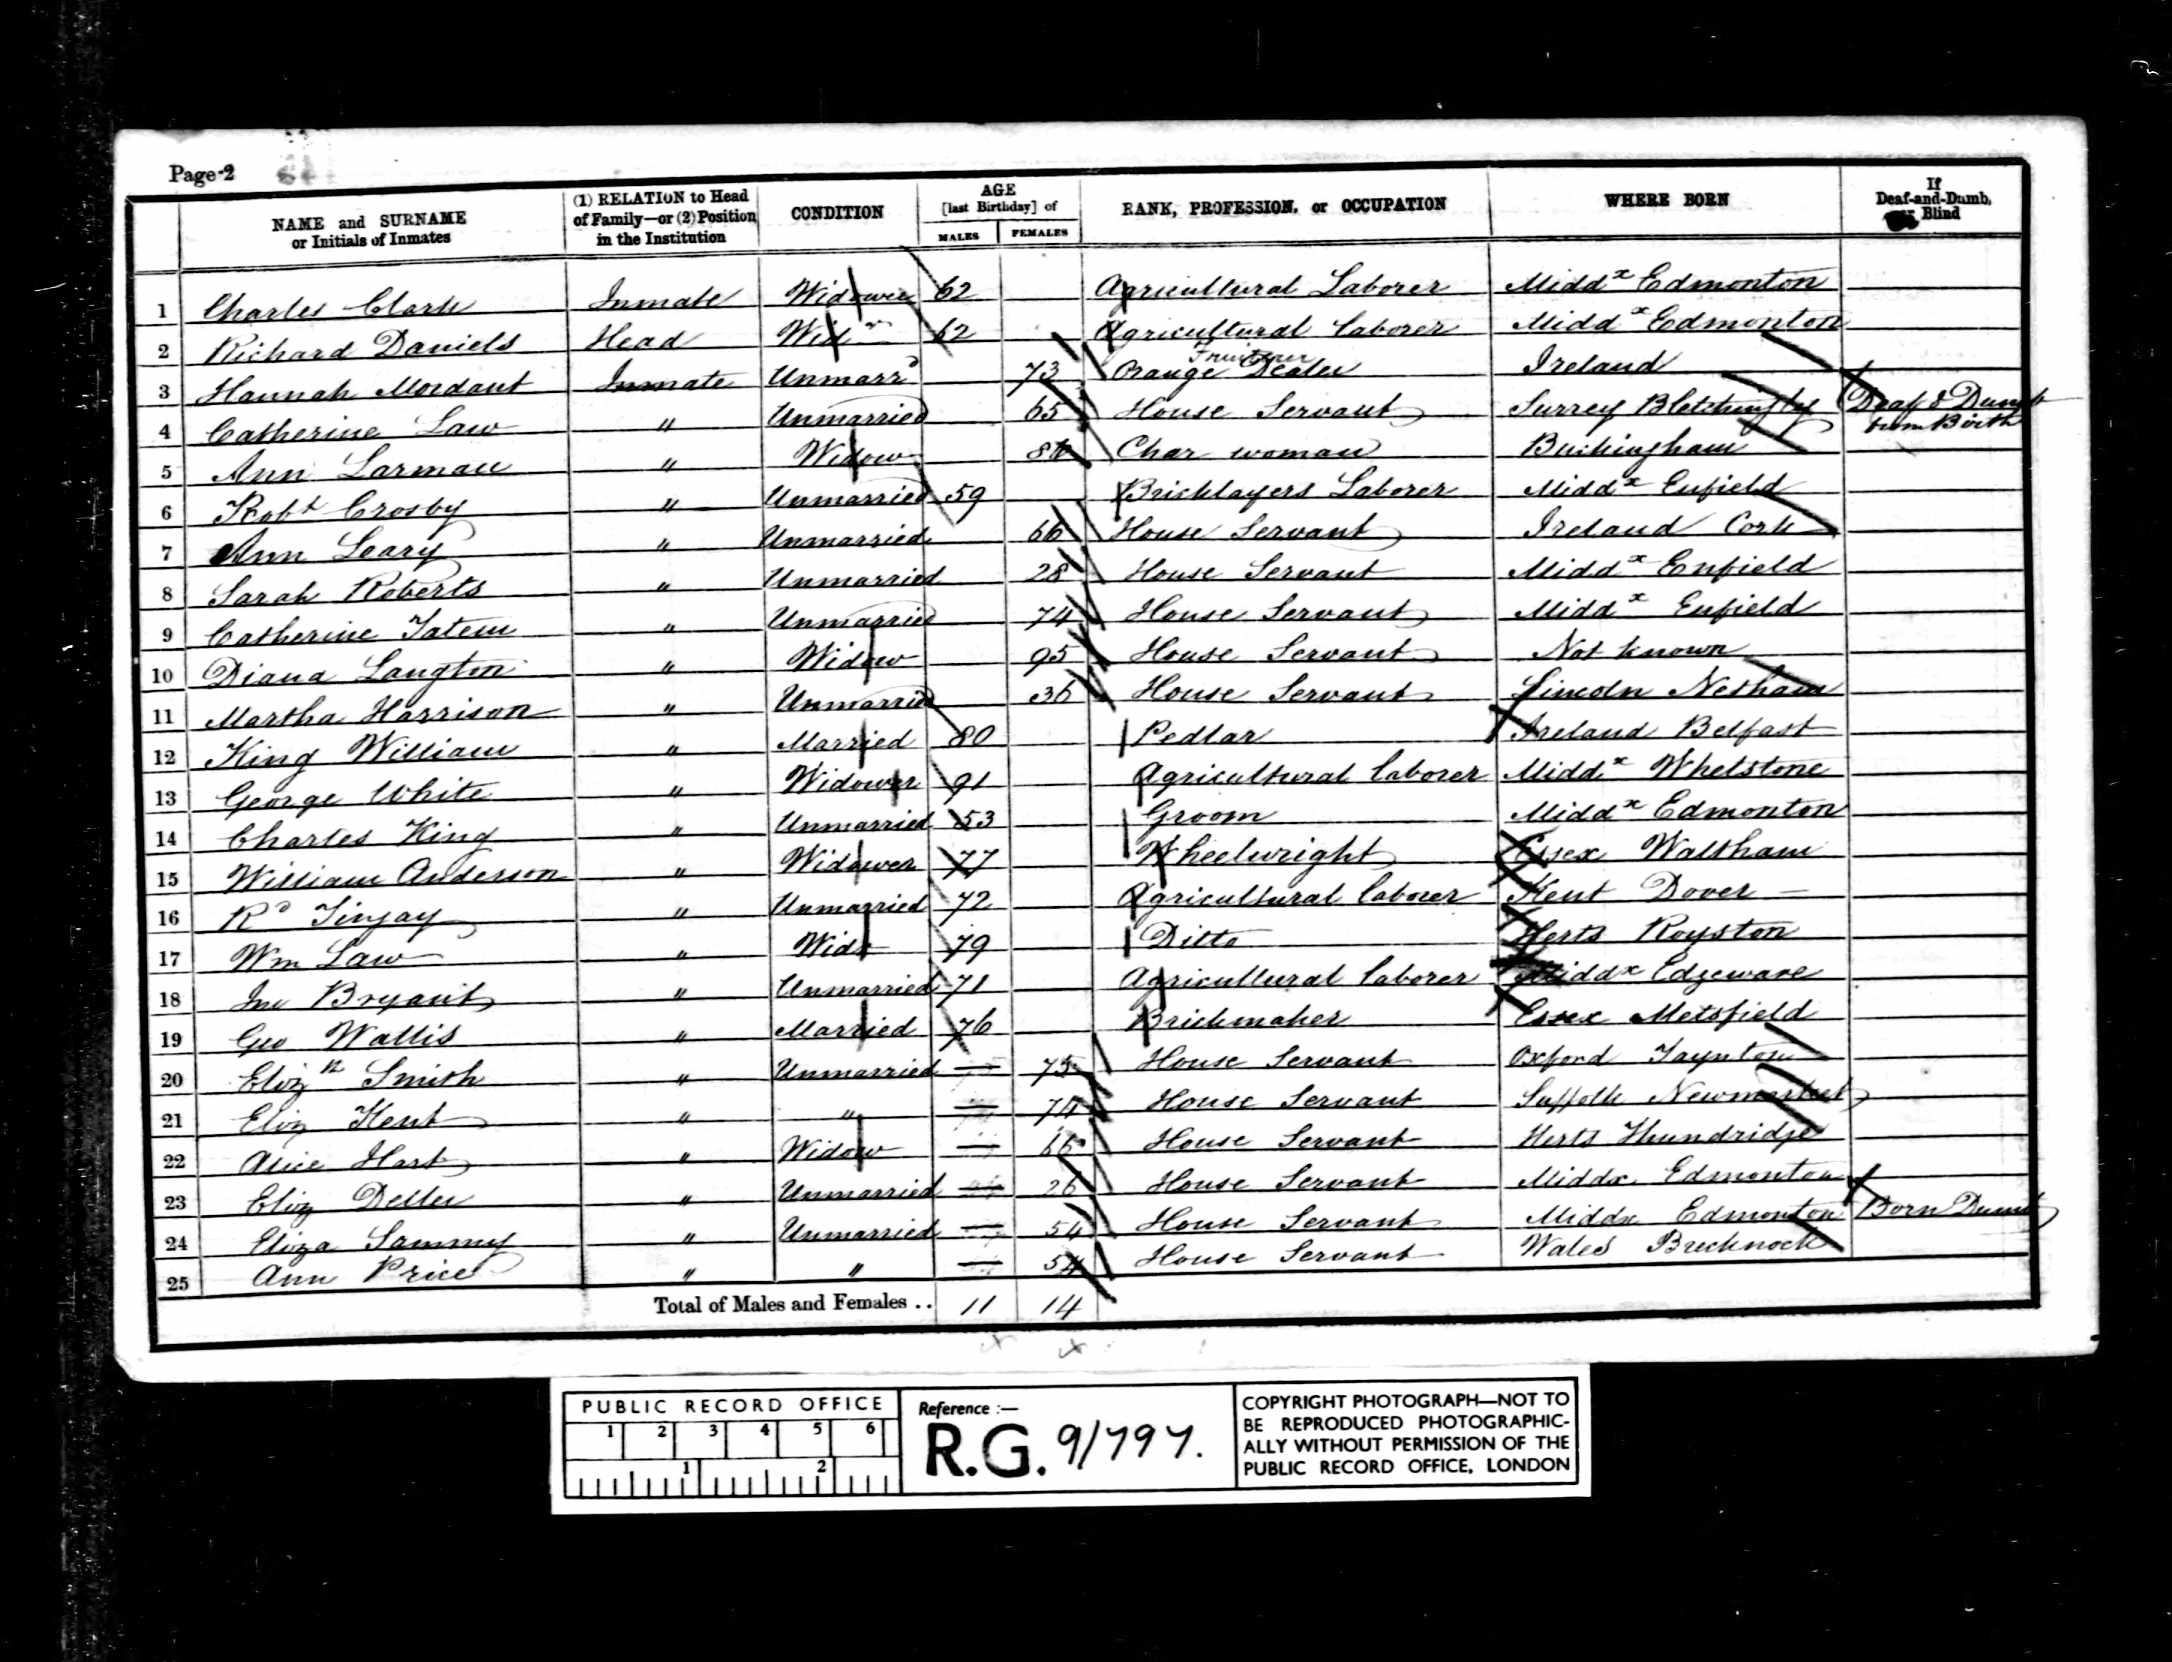 Page 2
NAME and SURNAME or Initials of Inmates | (1) RELATION to Head of Family—or (2) Position in the Institution | CONDITION | AGE [last Birthday] of MALES | FEMALES | RANK, PROFESSION, or OCCUPATION | WHERE BORN | If Deaf-and-Dumb, Blind
1 Charles Clark Inmate Widower 62 Agricultural Laborer Middx Edmonton
2 Richard Daniels Head Widr 62 Agricultural laborer Middx Edmonton
3 Hannah Mordaut Inmate Unmarrd 73 Orange Dealer Fruiterer Ireland
4 Catherine Law " Unmarried 65 House Servant Surrey Bletchingley Deaf & Dumb from Birth
5 Ann Larman " Widow Char woman Buckingham
6 Robt Crosby " Unmarried 59 Bricklayers Laborer Middx Enfield
7 Ann Leary " Unmarried 66 House Servant Ireland Cork
8 Sarah Roberts " Unmarried 28 House Servant Middx Enfield
9 Catherine Tatem " Unmarried 74 House Servant Middx Enfield
10 Diana Langton " Widow 95 House Servant Not known
11 Martha Harrison " Unmarried 36 House Servant Lincoln Netham
12 King William " Married 80 Pedlar Ireland Belfast
13 George White " Widower 91 Agricultural laborer Middx Whetstone
14 Charles King " Unmarried 53 Groom Middx Edmonton
15 William Anderson " Widower 77 Wheelwright Essex Waltham
16 Rd Tinjay " Unmarried 72 Agricultural laborer Kent Dover —
17 Wm Law " Widr 79 Ditto Herts Royston
18 Jno Bryant " Unmarried 71 Agricultural laborer Middx Edgeware
19 Geo Wallis " Married 76 Brickmaker Essex Metsfield
20 Elizth Smith " Unmarried — 75 House Servant Oxford Taynton
21 Eliz Kent " " — 74 House Servant Suffolk Newmarket
22 Alice Hart " Widow — 66 House Servant Herts Thundridge
23 Eliz Deller " Unmarried — 26 House Servant Middx Edmonton
24 Eliza Sammy " Unmarried — 54 House Servant Middx Edmonton Born Dumb
25 Ann Price " " — 54 House Servant Wales Brecknock
Total of Males and Females .. 11 14
PUBLIC RECORD OFFICE
1 2 3 4 5 6
1 2
Reference :—
R.G. 9/797.
COPYRIGHT PHOTOGRAPH—NOT TO
BE REPRODUCED PHOTOGRAPHIC-
ALLY WITHOUT PERMISSION OF THE
PUBLIC RECORD OFFICE, LONDON